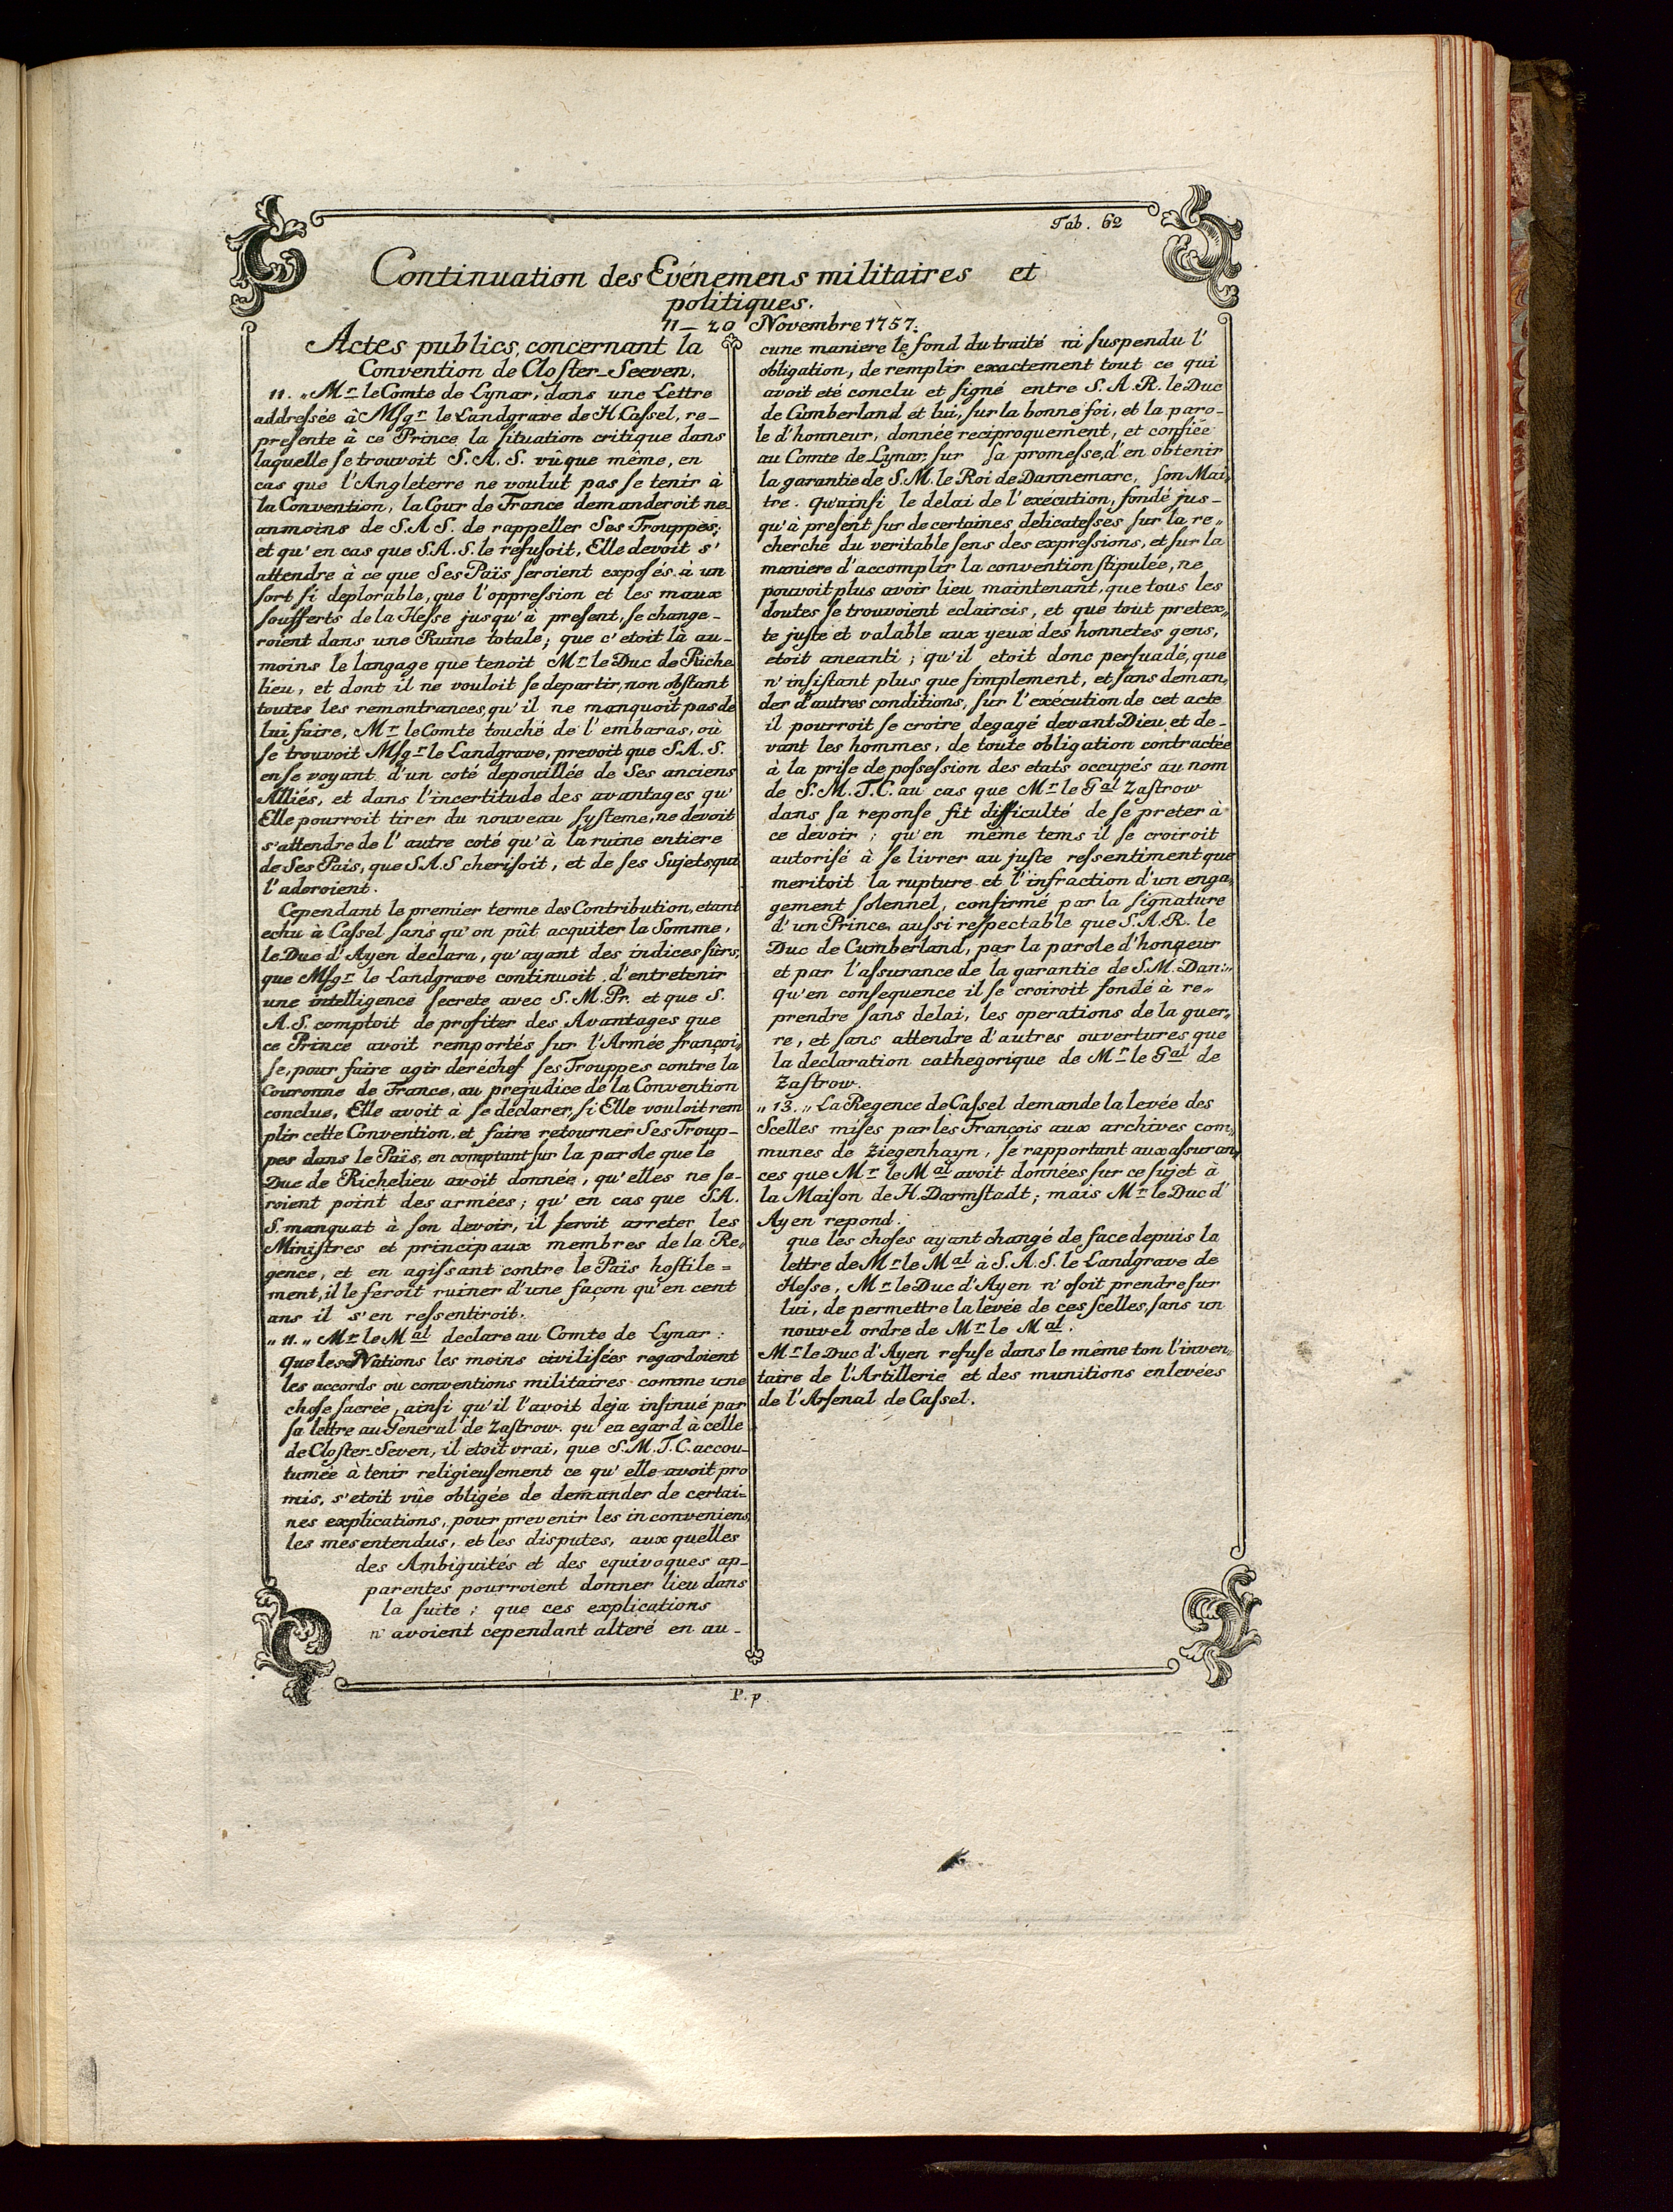 Tab. 62
Continuation des Evénemens militaires et
politiques.
11 — 20 Novembre 1757.
Actes publics, concernant la
Convention de Cloſter-Seeven.
11. „ Mr le Comte de Lynar, dans une Lettre
addreſsée à Mſgr le Landgrave de H Caſsel, re-
preſente à ce Prince la ſituation critique dans
laquelle ſe trouvoit S. A. S. vûque même, en
cas que l'Angleterre ne voulut pas ſe tenir à
la Convention, la Cour de France demanderoit ne-
anmoins de S.A.S. de rappeller Ses Trouppes;
et qu'en cas que S.A.S. le refuſoit, Elle devoit s'
attendre à ce que Ses Païs ſeroient expoſés à un
ſort ſi deplorable, que l'oppreſsion et les maux
ſoufferts de la Heſse jusqu'à preſent, ſe change-
roient dans une Ruine totale; que c'etoit là au-
moins le langage que tenoit Mr le Duc de Riche
lieu, et dont il ne vouloit ſe departir, non obſtant
toutes les remontrances, qu'il ne manquoit pas de
lui faire, Mr le Comte touché de l'embaras, où
ſe trouvoit Mſgr le Landgrave, prevoit que S.A.S.
en ſe voyant d'un coté depouillée de Ses anciens
Alliés, et dans l'incertitude des avantages qu'
Elle pourroit tirer du nouveau ſyſteme, ne devoit
s'attendre de l'autre coté qu'à la ruine entiere
de Ses Pais, que S.A.S cheriſoit, et de ſes Sujets, qui
l'adoroient.
Cependant le premier terme des Contribution, etant
echu à Caſsel ſans qu'on pût acquiter la Somme,
le Duc d'Ayen declara, qu'ayant des indices ſûrs,
que Mſgr le Landgrave continuoit d'entretenir
une intelligence ſecrete avec S.M.Pr. et que S.
A.S. comptoit de profiter des Avantages que
ce Prince avoit remportés ſur l'Armée françoi„
ſe, pour faire agir deréchef ſes Trouppes contre la
Couronne de France, au prejudice de la Convention
conclue, Elle avoit à ſe déclarer, ſi Elle vouloit rem
plir cette Convention, et faire retourner Ses Troup-
pes dans le Païs, en comptant ſur la parole que le
Duc de Richelieu avoit donnée, qu'elles ne ſe-
roient point des armées; qu'en cas que S.A.
S. manquat à ſon devoir, il feroit arreter les
Miniſtres et principaux membres de la Re„
gence, et en agiſsant contre le Païs hoſtile=
ment, il le feroit ruiner d'une façon qu'en cent
ans il s'en reſsentiroit.
„ 11. „ Mr le Mal declare au Comte de Lynar:
Que les Nations les moins civiliſées regardoient
les accords où conventions militaires comme une
choſe ſacrée, ainſi qu'il l'avoit deja inſinué par
ſa lettre au Général de Zaſtrow. qu'en egard à celle
de Cloſter-Seven, il etoit vrai, que S.M.T.C. accou-
tumée à tenir religieuſement ce qu'elle avoit pro
mis, s'etoit vûe obligée de demander de certai=
nes explications, pour prevenir les inconveniens,
les mesentendus, et les disputes, aux quelles
des Ambiguités et des equivoques ap-
parentes pourroient donner lieu dans
la ſuite; que ces explications
n'avoient cependant alteré en au-
cune maniere le fond du traité ni ſuspendu l'
obligation, de remplir exactement tout ce qui
avoit eté conclu et ſigné entre S.A.R. le Duc
de Cumberland et lui, ſur la bonne foi, et la paro-
le d'honneur, donnée reciproquement, et confiée
au Comte de Lynar ſur ſa promeſse, d'en obtenir
la garantie de S.M. le Roi de Dannemarc, ſon Mai„
tre. Qu'ainſi le delai de l'exécution, fondé jus-
qu'à preſent ſur de certaines delicateſses ſur la re„
cherche du veritable ſens des expreſsions, et ſur la
maniere d'accomplir la convention ſtipulée, ne
pouvoit plus avoir lieu maintenant, que tous les
doutes ſe trouvoient eclaircis, et que tout pretex„
te juſte et valable aux yeux des honnetes gens,
étoit aneanti; qu'il etoit donc perſuadé, que
n'inſiſtant plus que ſimplement, et ſans deman„
der d'autres conditions, ſur l'exécution de cet acte
il pourroit ſe croire degagé devant Dieu et de-
vant les hommes, de toute obligation contractée
à la priſe de poſseſsion des etats occupés au nom
de S.M.T.C. au cas que Mr le Gal Zaſtrow
dans ſa reponſe fit difficulté de ſe preter à
ce devoir; qu'en même tems il ſe croiroit
autoriſé à ſe livrer au juſte reſsentiment que
meritoit la rupture et l'infraction d'un enga„
gement ſolennel, confirmé par la ſignature
d'un Prince auſsi reſpectable que S.A.R. le
Duc de Cumberland, par la parole d'honneur
et par l'aſsurance de la garantie de S.M. Dan:„
qu'en conſequence il ſe croiroit fondé à re„
prendre ſans delai, les operations de la guer„
re, et ſans attendre d'autres ouvertures que
la declaration cathegorique de Mr le Gal de
Zaſtrow.
„ 13. „ La Regence de Caſsel demande la levée des
Scelles miſes par les François aux archives com„
munes de Ziegenhayn, ſe rapportant aux aſsuran„
ces que Mr le Mal avoit données ſur ce ſujet à
la Maiſon de H. Darmſtadt; mais Mr le Duc d'
Ayen repond.
que les choſes ayant changé de face depuis la
lettre de Mr le Mal à S.A.S. le Landgrave de
Heſse, Mr le Duc d'Ayen n'oſoit prendre ſur
lui, de permettre la levée de ces ſcelles, ſans un
nouvel ordre de Mr le Mal.
Mr le Duc d'Ayen refuſe dans le même ton l'inven„
taire de l'Artillerie et des munitions enlevées
de l'Arſenal de Caſsel.
P. p